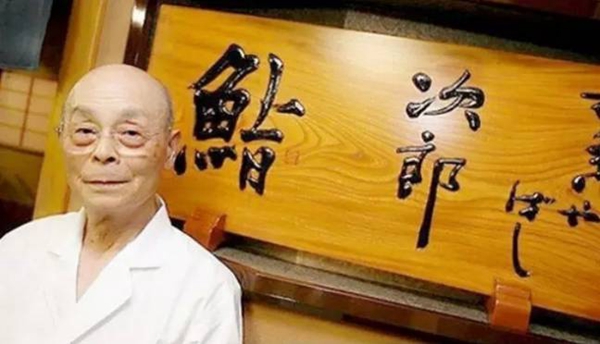 や
ばし
次郎
鮨